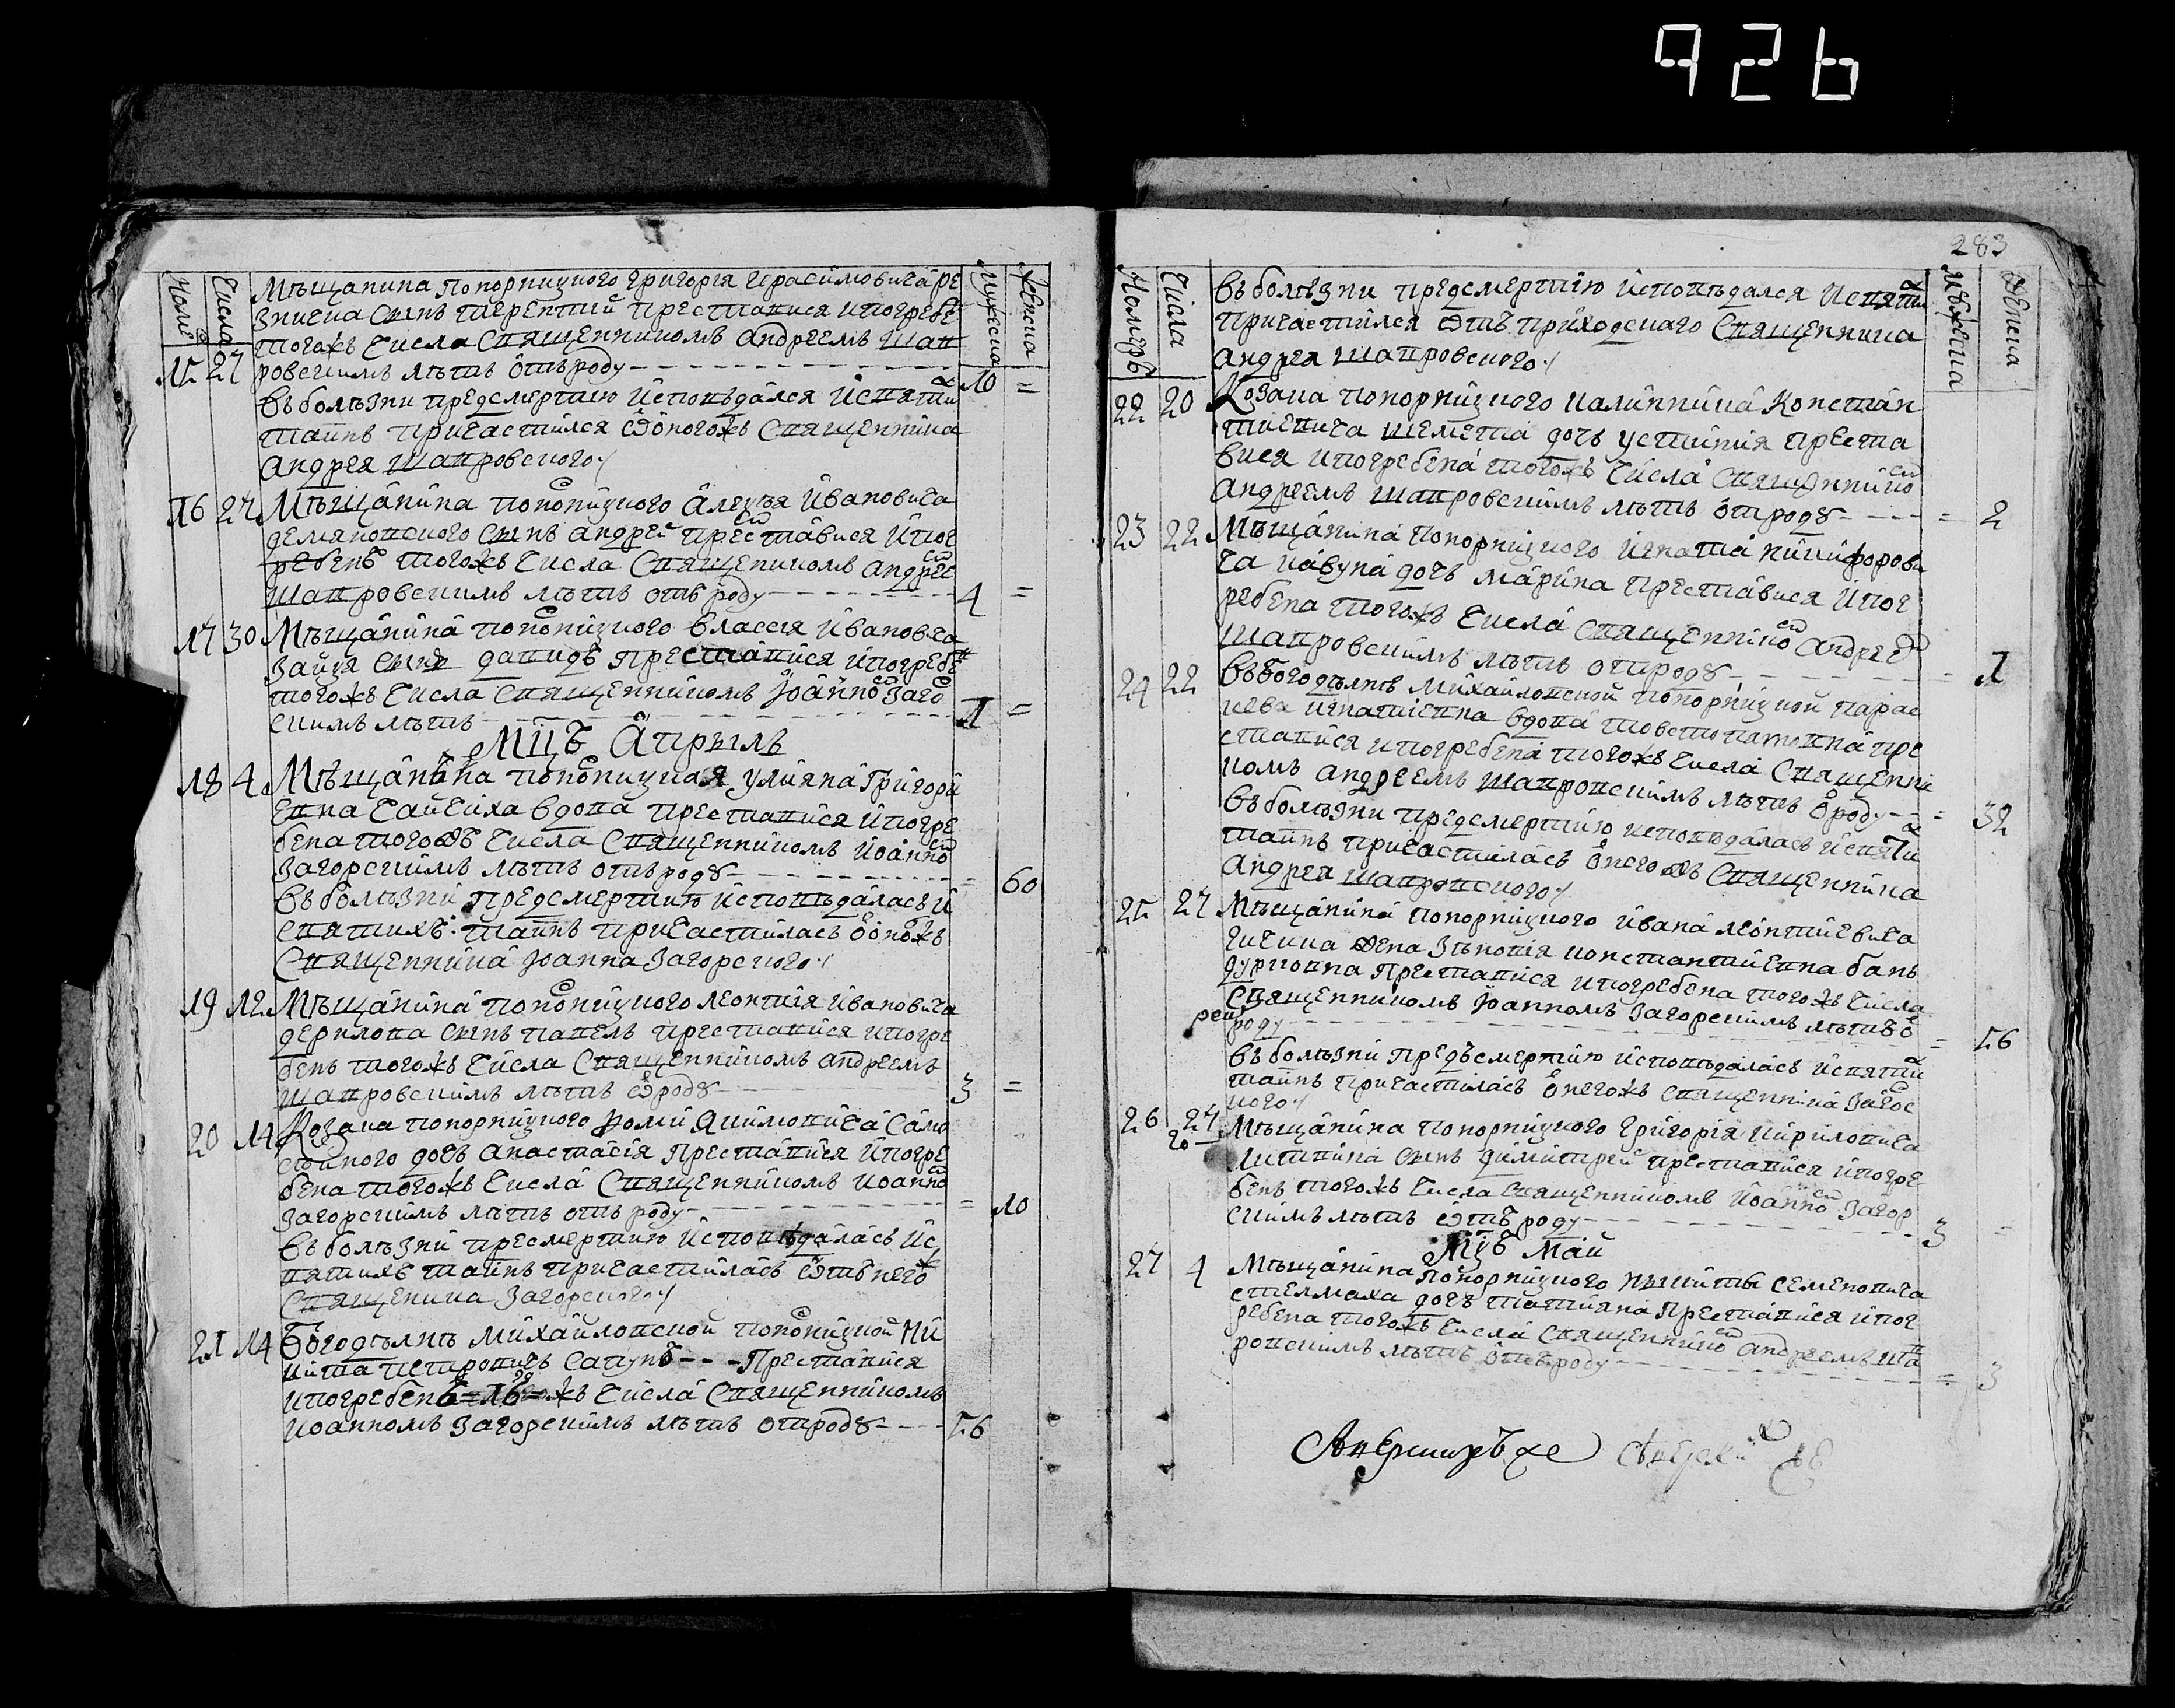 926
Номе Числа Мужеска Женска
Мѣщанина Поπорницкого Григорія Герасимовича ре
зника сынъ Терентій преставися и погребе
тогожъ числа священникомъ Андреемъ Шап
15 27 ровскимъ лѣтъ отъ роду 10 =
въ болѣзни предсмертію исповѣдался и святы
таинъ причастился ѿ оногожъ священника
Андрея Шапровского
16 27 Мѣщанина Алеѯѣя Ивановича
Демяновского сынъ Андрей преставися и пог
ребенъ тогожъ числа священикомъ Андрее
Шапровскимъ лѣтъ отъ роду 4 =
17 30 Мѣщанина Власія Ивановича
Зайця сынъ Давидъ преставися и погребе
тогожъ числа священникомъ Іоанно Заго
скимъ лѣтъ 1 =
Мцъ Апрыль
18 4 Мѣщанка Улияна Григори
евна вдова преставися и погре
бена тогожъ числа священникомъ Иоанно
Загорскимъ лѣтъ отъ роду = 60
въ болѣзни предсмертию исповѣдалась и
святихъ таинъ причастилась ѿ оногожъ
священника Іоанна Загорского
19 12 Мѣщанина Леонтія Ивановича
сынъ Павелъ преставися и погре
бенъ тогожъ числа священникомъ Андреемъ
Шапровскимъ лѣтъ ѿ роду 3 =
20 14 Козака попорницкого Фоми Якимовича Само
сѣйного дочъ Анастасія преставися и погре
бена тогожъ числа священникомъ Иоанно
Загорскимъ лѣтъ отъ роду = 10
въ болѣзни пресмертию исповѣдалась и с
вятихъ таинъ причастилась ѿтъ него
священика Загорского
21 14 Богодѣлнѣ Михайловской Ни
кита Петровичъ Сапунъ преставися
и погребенъ =16= жъ числа священникомъ
Иоанномъ Загорскимъ лѣтъ отроду 56
283
Номеръ Числа Мужеска Женска
въ болѣзни предсмертію исповѣдался и святы
причастился ѿтъ приходского священника
Андрея Шапровского
22 20 Козака попорницкого Калинника Констан
тиевича Шемета дочъ Устинія преста
вися и погребена тогожъ числа священнико
Андреемъ Шапровскимъ лѣтъ отроду = 2
23 22 Мѣщанина попорницкого Игната Никифорови
ча Кавуна дочъ Марина преставися и пог
ребена тогожъ числа священнико Андрее
Шапровскимъ лѣтъ отроду 1
24 22 въ богодѣлнѣ Михайловской попорницкой Парас
кева Игнатіевна вдова пре
ставися и погребена тогожъ числа священни
комъ Андреемъ Шапровскимъ лѣтъ ѿ роду = 32
въ болѣзни предсмертию исповѣдалась и святи
таинъ причастилась ѿ негожъ священника
Андрея Шапровского
25 27 Мѣщанина попорницкого Ивана Леонтиевича
жена Зѣновія Константиевна
преставися и погребена тогожъ числа
священникомъ Іоанномъ Загорскимъ лѣтъ ѿ
роду = 56
въ болѣзни предъсмертию исповѣдалась и святи
таинъ причастилась ѿ негожъ священника Загос
кого
26 27 Мѣщанина попорницкого Григорія Кириловича
20 Литвина сынъ Димитрей преставися и погре
бенъ тогожъ числа священникомъ Иоанно Загор
скимъ лѣтъ ѿтъ роду 3 =
Мцъ Май
27 4 Мѣщанина попорницкого Никиты Семеновича
Стелмаха дочъ Татияна преставися и пог
ребена тогожъ числа священнико Андреемъ Ша
ровскимъ лѣтъ отъ роду = 3